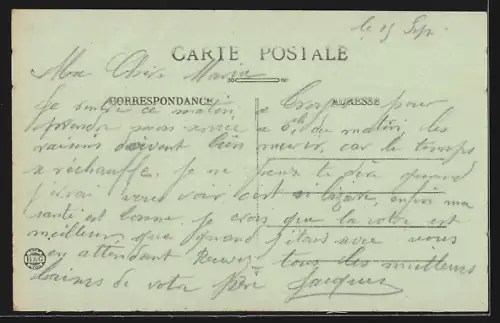 le 25 Sept
CARTE POSTALE
Ma Chère Maria
CORRESPONDANCE ADRESSE
Je rentre ce matin a pour
prendre mon service a 6h du matin, les
raisins doivent bien meurir, car le temps
a réchauffé. Je ne peux te dire quand
j'irai vous voir c'est si, enfin ma
santé est bonne. Je crois que la votre est
meilleur que quand j'étais avec vous
en attendant Recevez tous les meilleurs
baisers de votre père Jacques